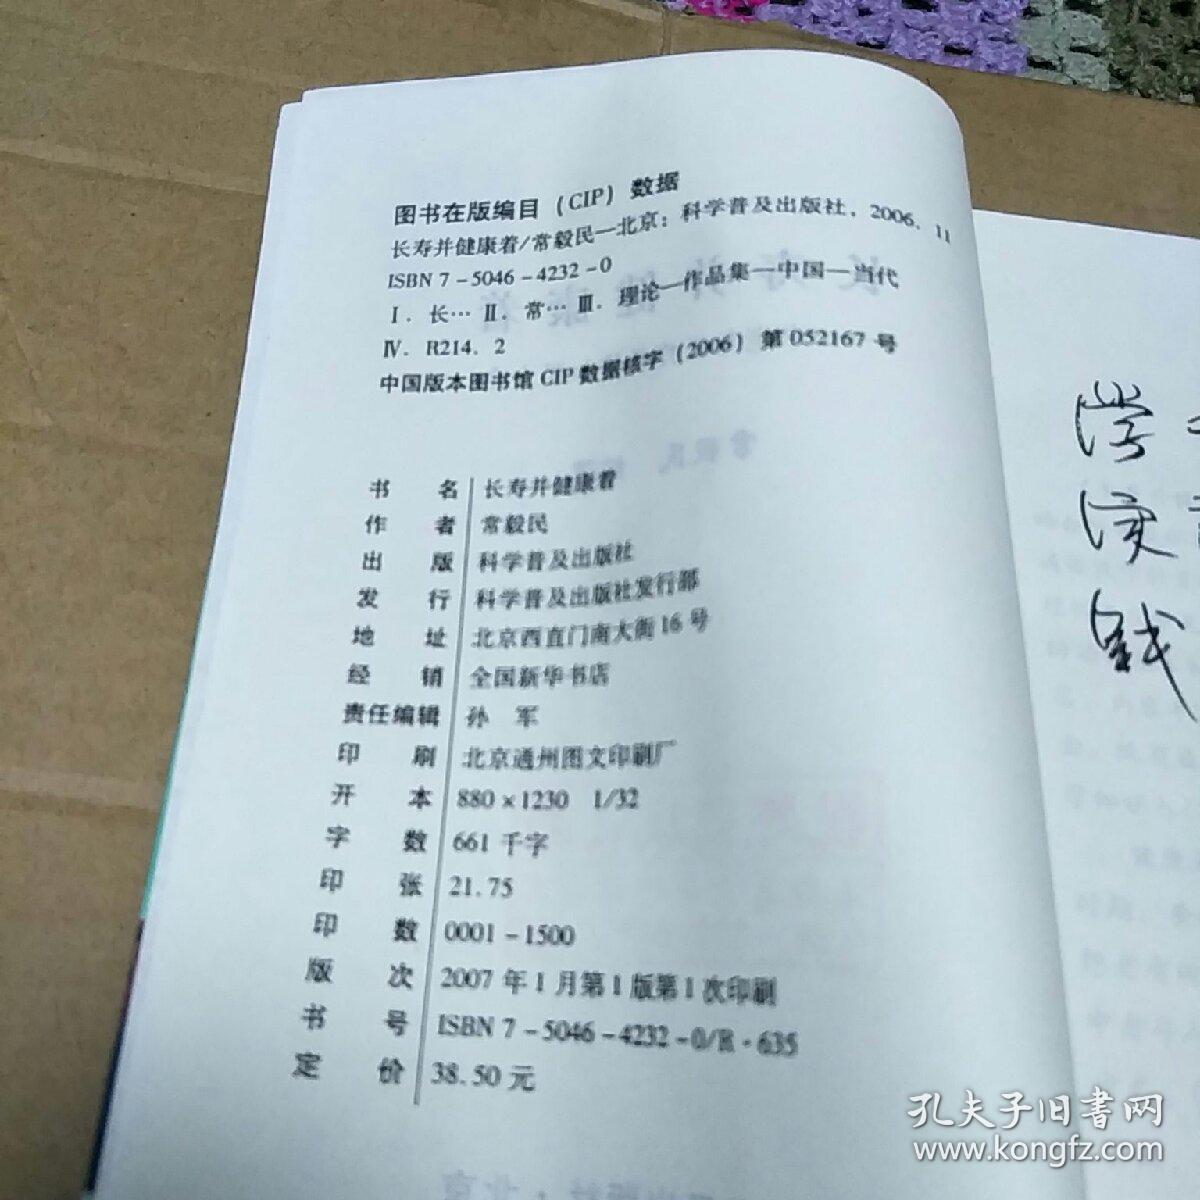 图书在版编目（CIP）数据
长寿并健康着/常毅民—北京：科学普及出版社，2006．11
ISBN 7－5046－4232－0
Ⅰ．长… Ⅱ．常… Ⅲ．理论—作品集—中国—当代
Ⅳ．R214．2
中国版本图书馆 CIP 数据核字（2006）第 052167 号
书 名 长寿并健康着
作 者 常毅民
出 版 科学普及出版社
发 行 科学普及出版社发行部
地 址 北京西直门南大街 16 号
经 销 全国新华书店
责任编辑 孙 军
印 刷 北京通州图文印刷厂
开 本 880×1230 1/32
字 数 661 千字
印 张 21.75
印 数 0001－1500
版 次 2007 年 1 月第 1 版第 1 次印刷
书 号 ISBN 7－5046－4232－0/R·635
定 价 38.50 元
孔夫子旧书网
www.kongfz.com